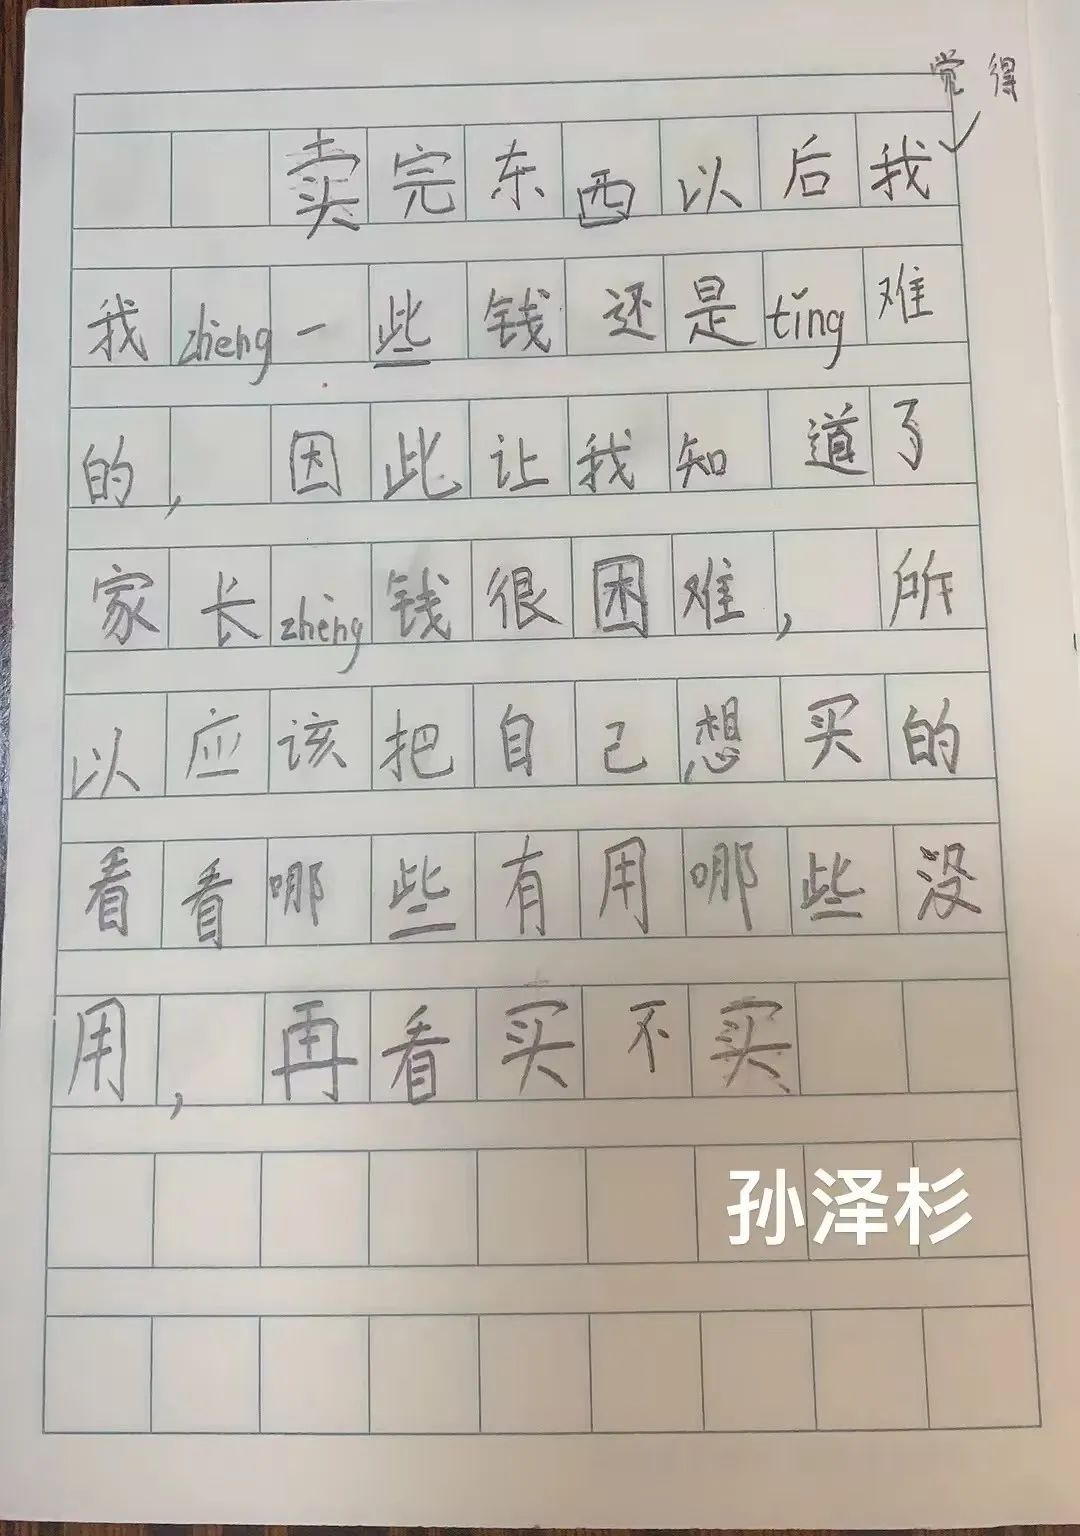 觉得
卖完东西以后我
我zhèng一些钱还是tǐng难
的，因此让我知道了
家长zhèng钱很困难，所
以应该把自己想买的
看看哪些有用哪些没
用，再看买不买
孙泽杉